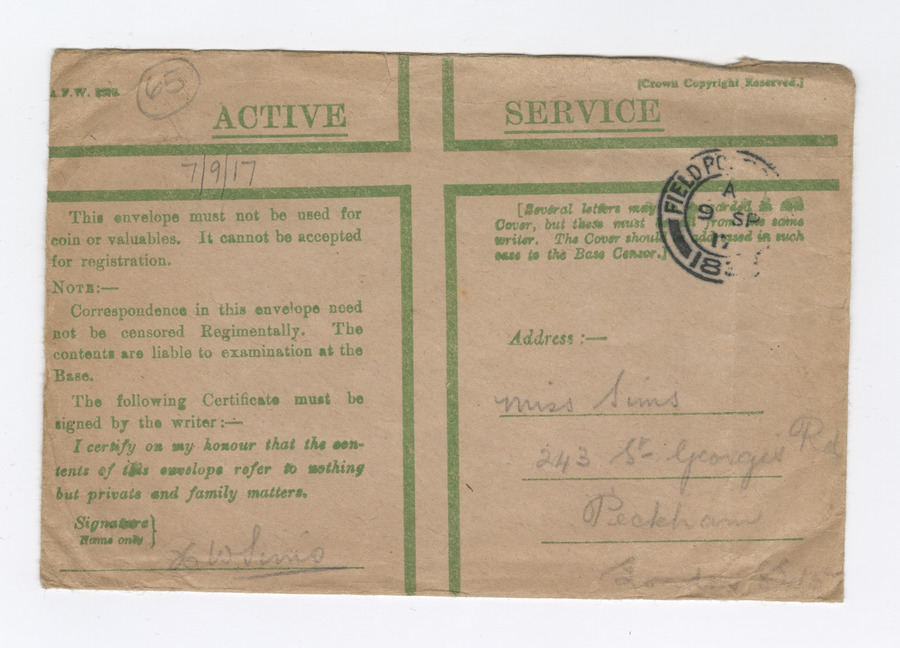 65
[Crown Copyright Reserved.]
ACTIVE SERVICE
7/9/17
This envelope must not be used for
coin or valuables. It cannot be accepted
for registration.
NOTE:—
Correspondence in this envelope need
not be censored Regimentally. The
contents are liable to examination at the
Base.
The following Certificate must be
signed by the writer:—
I certify on my honour that the con-
tents of this envelope refer to nothing
but private and family matters.
Signature
Name only
Sims
FIELD PO
A
9 SP
17
18
[Several letters may
Cover, but these must from the same
writer. The Cover should addressed in such
case to the Base Censor.]
Address:—
Miss Sims
243 St Georges Rd
Peckham
London